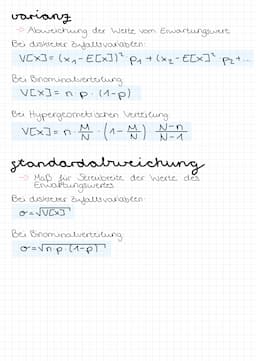 varianz
→ Abweichung der Werte vom Erwartungswert
Bei diskreter Zufallsvariablen:
V[X] = (x₁ - E[X])² p₁ + (x₂ - E[X]² p₂ + ...
Bei Binominalverteilung
V[X] = n · p · (1-p)
Bei Hypergeometrischen Verteilung
V[X] = n · M/N · (1 - M/N) N-n/N-1
standardabweichung
→ Maß für Streubreite der Werte des
Erwartungswertes
Bei diskreter Zufallsvariablen:
σ = √V[X]
Bei Binominalverteilung:
σ = √n · p · (1-p)